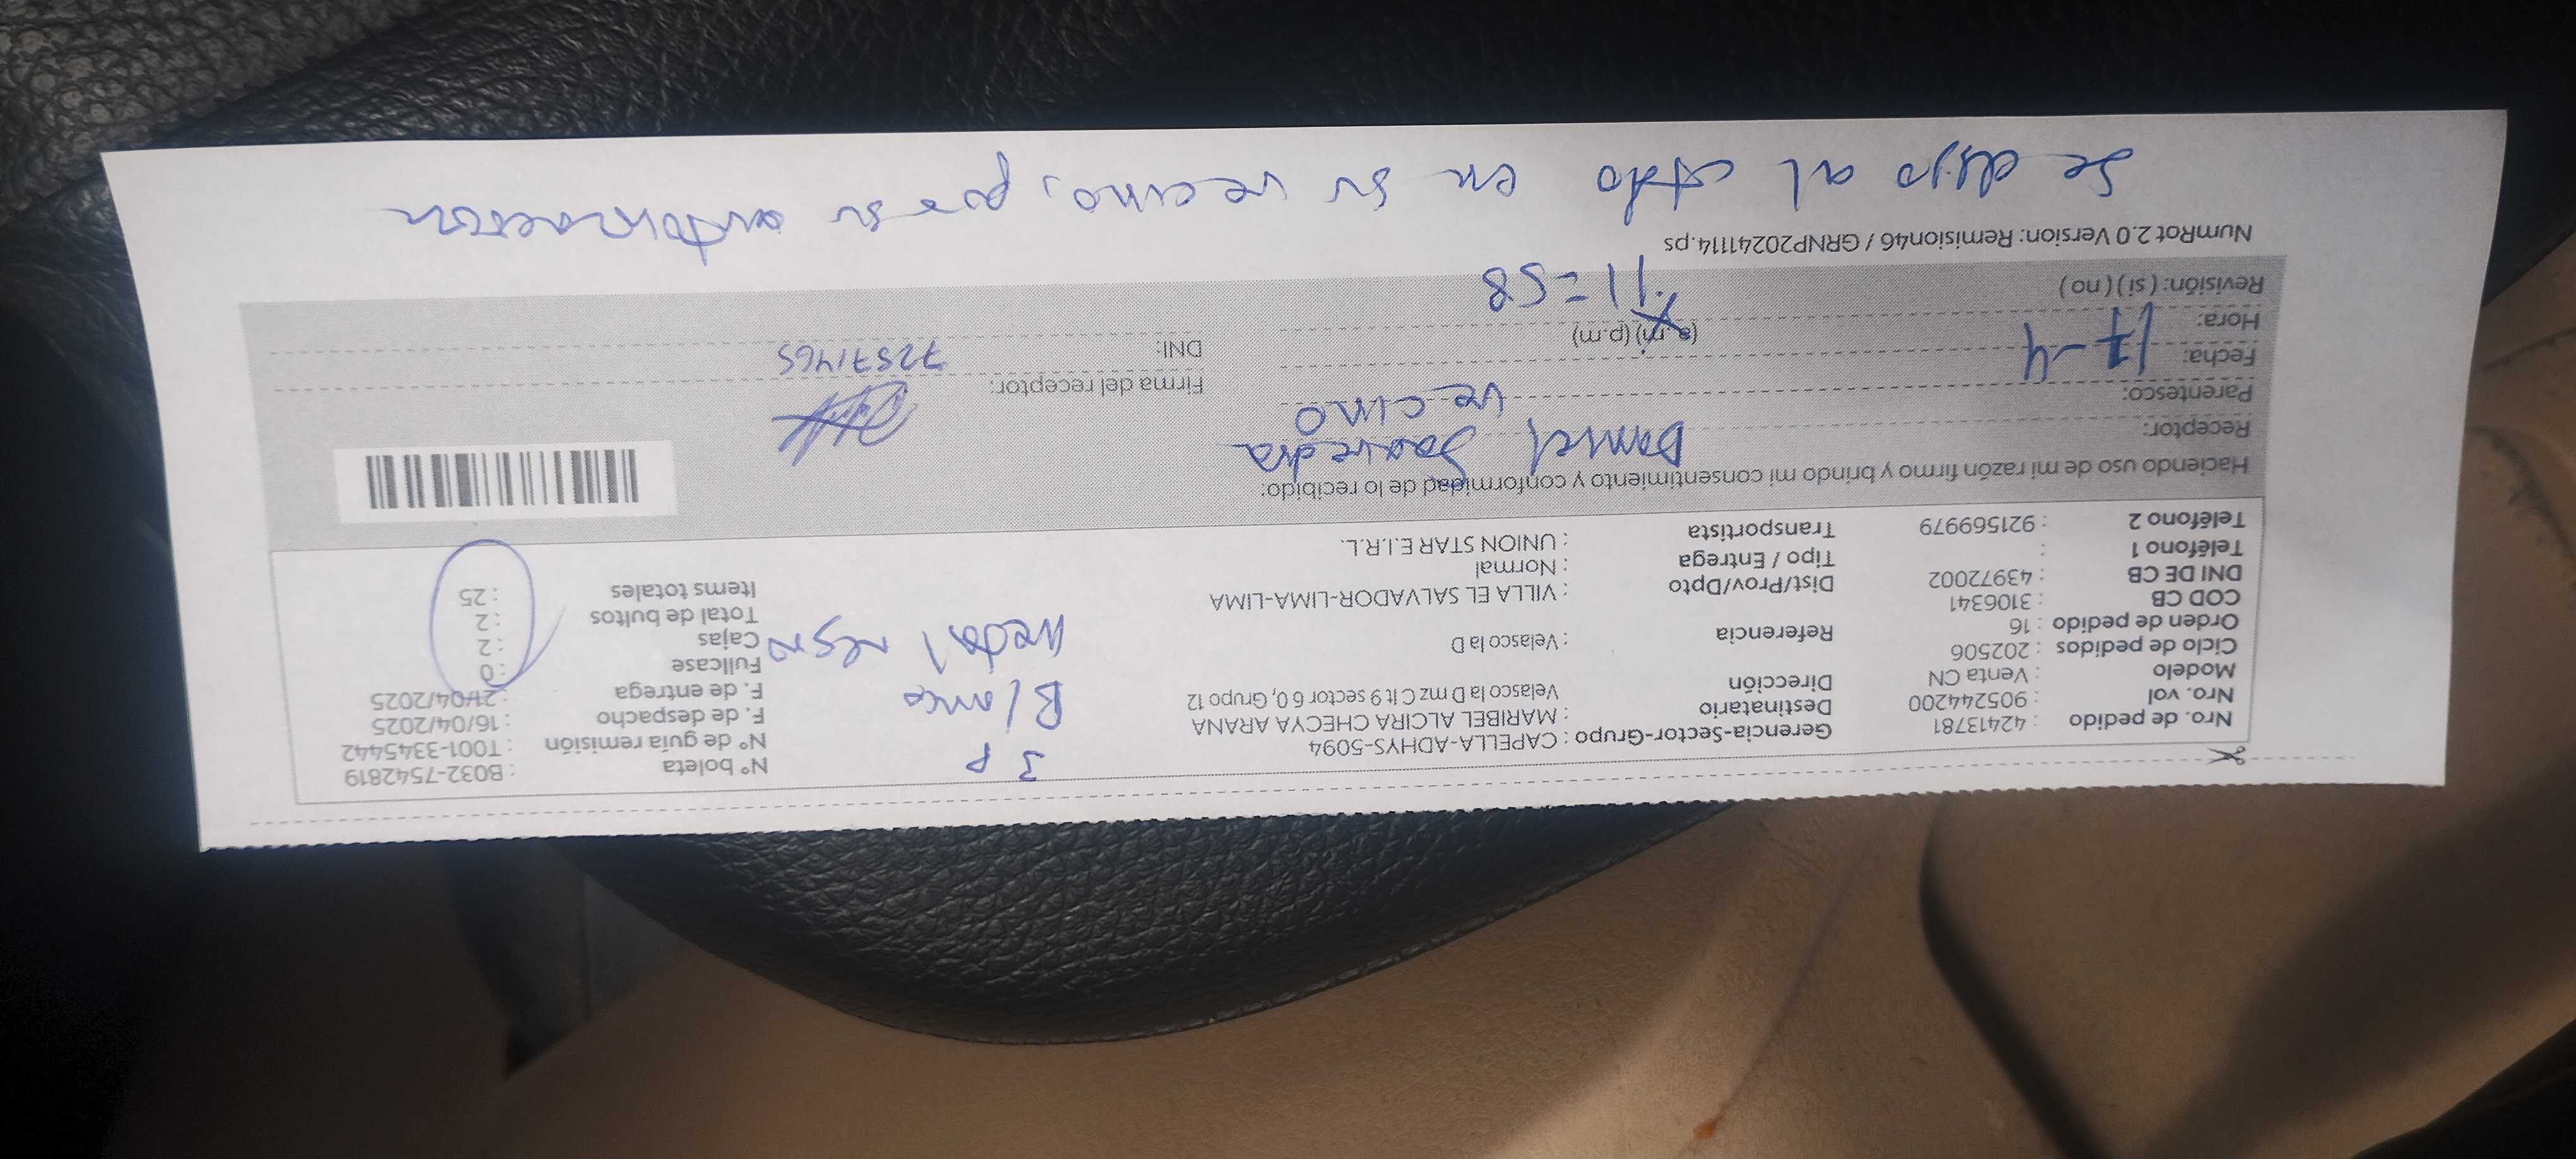 Nro. de pedido : 42413781
Nro. vol : 905244200
Modelo : Venta CN
Ciclo de pedidos : 202506
Orden de pedido : 16
COD CB : 3106341
DNI DE CB : 43972002
Teléfono 1 :
Teléfono 2 : 921569979
Gerencia-Sector-Grupo : CAPELLA-ADHYS-5094
Destinatario : MARIBEL ALCIRA CHECYA ARANA
Dirección Velasco la D mz C lt 9 sector 6 0, Grupo 12
Referencia : Velasco la D
Dist/Prov/Dpto : VILLA EL SALVADOR-LIMA-LIMA
Tipo / Entrega : Normal
Transportista : UNION STAR E.I.R.L.
3 P
Blanco
Metal negro
N° boleta : B032-7542819
N° de guía remisión : T001-3345442
F. de despacho : 16/04/2025
F. de entrega : 21/04/2025
Fullcase : 0
Cajas : 2
Total de bultos : 2
Items totales : 25
Haciendo uso de mi razón firmo y brindo mi consentimiento y conformidad de lo recibido:
Receptor: Daniel Saavedra
Parentesco: vecino
Fecha: 17-4
Hora: (a.m) (p.m)
11=58
Revisión: ( si ) ( no )
Firma del receptor:
DNI: 72571465
NumRot 2.0 Version: Remision46 / GRNP20241114.ps
Se dejo al lado en su vecino, por su autorización